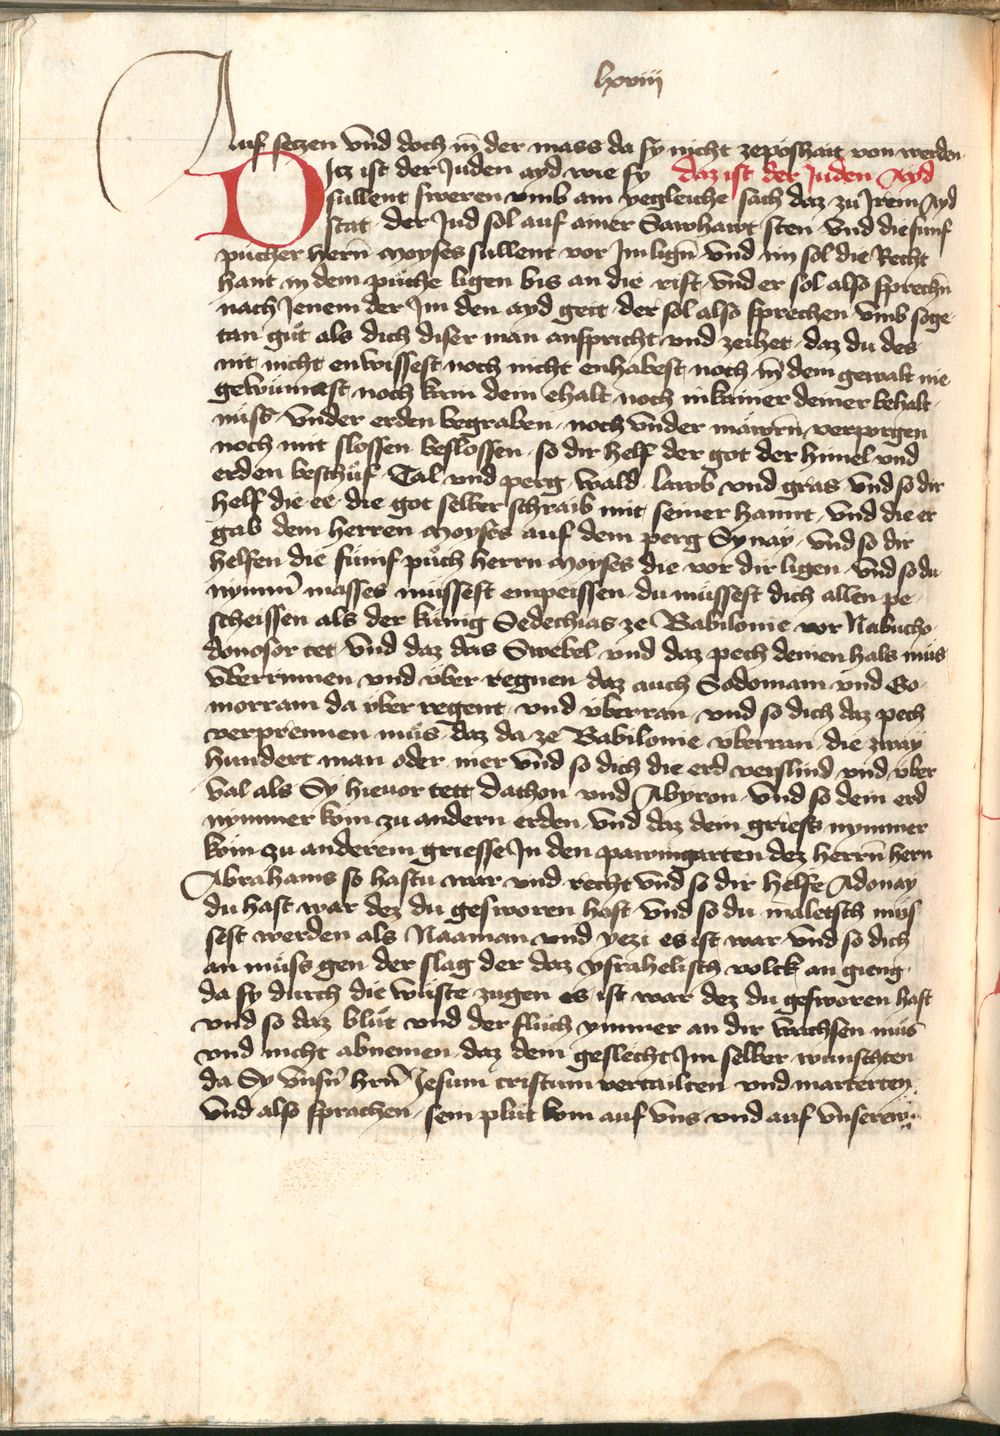 lxviii
Auf seczen vnd doch in̄ der mass da sy nicht zeposhait von werden
Dicz ist der Juden ayd wie sy daz ist der Juden Ayd
sullent sweren vmb ain yegleiche sach daz zu Irem Ayd
stat · der Jud sol auf ainer Sawhawt sten · Vnd die funf
pücher herrn̄ Moyses sullent vor Im lign̄ · vnd im sol die Recht
hant in dem püche ligen bis an die rist · vnd er sol also sprechn̄
nach Jenem der Im den ayd geit · der sol also sprechen · vmb soge
tan gůt als dich diser man anspricht vnd zeihet · daz du des
nit nicht en wissest noch nicht enhabest noch in̄ dein gewalt nie
gewunnest noch kain dein ehalt · noch in kainer deiner behalt
nüss · vnder erden begraben · noch vnder mäwrn̄ verporgen
noch mit slossen beslossen · so dir helf der got der himel vnd
erden beschůf · Tal vnd perg · wald · lawb vnd gras · Vnd so dir
helf die ee · die got selber schraib mit seiner hannt · vnd die er
gab dem herren Moyses auf dem perg Synay · vnd so dir
helfen die fumf půch herrn Moyses die vor dir ligen · Vnd so du
nymm̄ masses müssest enpeissen · du müssest dich allen pe
scheissen als der künig Sedechias ze Babilonie vor Nabucho
donosor tet · Vnd daz das Swebel vnd daz pech deinen hals müs
vberrinnen vnd vber regnen daz auch Sodomam vnd Go
morram da vber regent · vnd vberran · vnd so dich daz pech
verprennen müs · daz da ze Babilonie vberran · die zway
hundert man oder mer vnd so dich die erd verslind vnd vber
val als Sy hieuor tett Dathon vnd Abyron · vnd so dein erd
nymmer kom zu andern erden · vnd daz dein griess nymmer
kom zu anderem griesse In den pawmgarten dez herrn̄ hern
Abrahams so hastu war vnd recht vnd so dir helfe Adonay
du hast war dez du gesworen hast · vnd so du maletsch müs
sest werden als Naaman vnd yezi es ist war vnd so dich
an müss gen der slag der daz ysrahelisch volck an gieng ·
da sy durch die wüste zugen es ist war dez du gesworen hast
vnd so daz blüt vnd der flüch ymmer an dir wachsen müs
vnd nicht abnemen · daz dein geslecht Im selber wunschten
da Sy vnsn̄ hrn̄ Jesum cristum vertailten vnd marterten
Vnd also sprachen · sein plüt kom auf vns vnd auf vnser